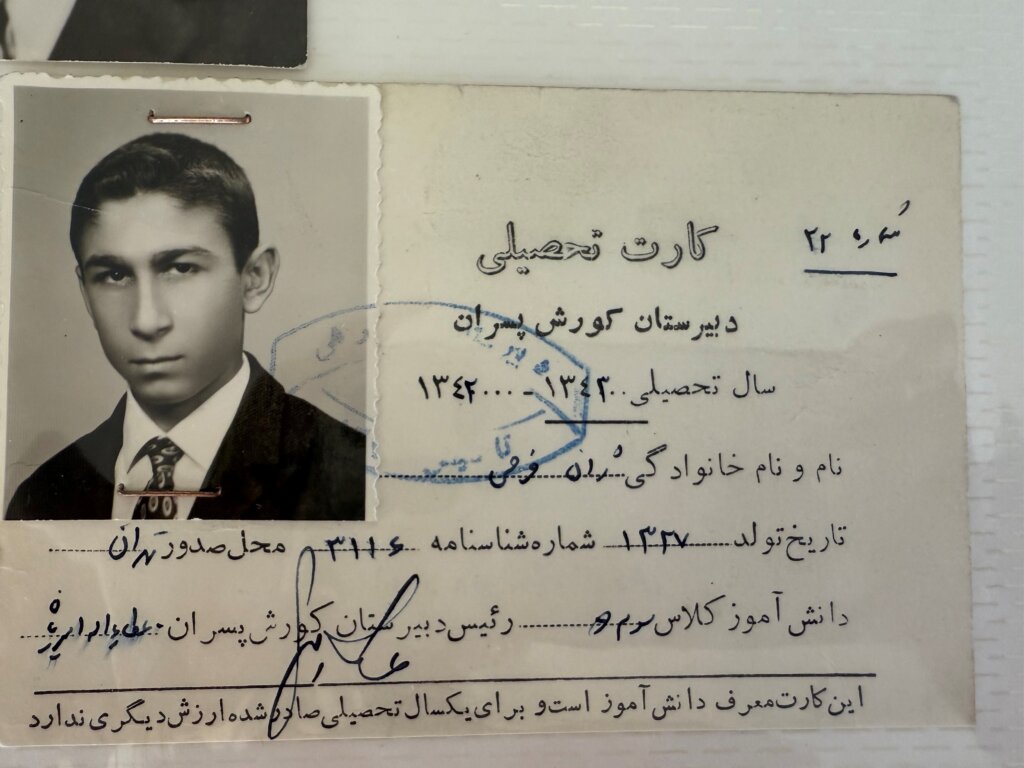 شماره ۲۲
کارت تحصیلی
دبیرستان کورش پسران
سال تحصیلی ۱۳۴۳ - ۱۳۴۲
نام و نام خانوادگی فرخی
تاریخ تولد ۱۳۲۷ شماره شناسنامه ۳۱۱۶ محل صدور تهران
دانش آموز کلاس رئیس دبیرستان کورش پسران
این کارت معرف دانش آموز است و برای یکسال تحصیلی صادر شده ارزش دیگری ندارد